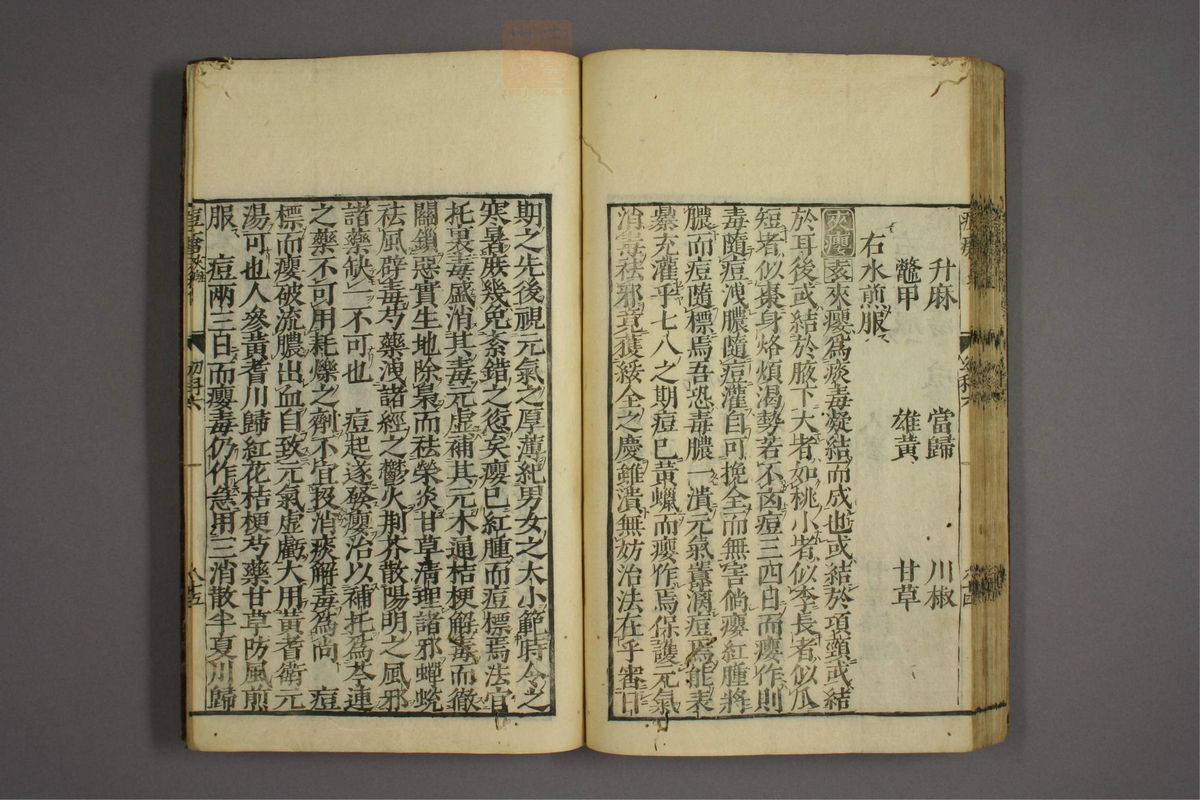 升麻 當歸 川椒
鼈甲 雄黃 甘草
右水煎服
夾癭 玄夾癭為痰毒凝結而成也或結於項頸或結
於耳後或結於腋下大者如桃小者似李長者似瓜
短者似棗身烙煩渴勢若不囪痘三四日而癭作則
毒隨痘洩膿隨痘灌自可挽全而無害倘癭紅腫將
膿而痘隨標焉吾恐毒膿一潰元氣蕭漓痘焉能表
暴充灌乎七八之期痘已黃蠟而癭作焉保護元氣
消毒祛邪竟獲綏全之慶雖潰無妨治法在乎審日
期之先後視元氣之厚薄紀男女之大小範時令之
寒暑庶幾免紊錯之愆矣癭已紅腫而痘標焉法宜
托裏毒盛消其毒元虛補其元木通桔梗解毒而徹
關鎖惡實生地除梟而祛榮炎甘草清理諸邪蟬蛻
祛風辟毒芍藥洩諸經之鬱火荆芥散陽明之風邪
諸藥缺一不可也 痘起遂發癭治以補托為芩連
之藥不可用耗爍之劑不宜投消痰解毒為尚 痘
標而癭破流膿出血自致元氣虛虧大用黃耆衛元
湯可也人參黃耆川歸紅花桔梗芍藥甘草防風煎
服 痘兩三日而癭毒仍作急用三消散半夏川歸